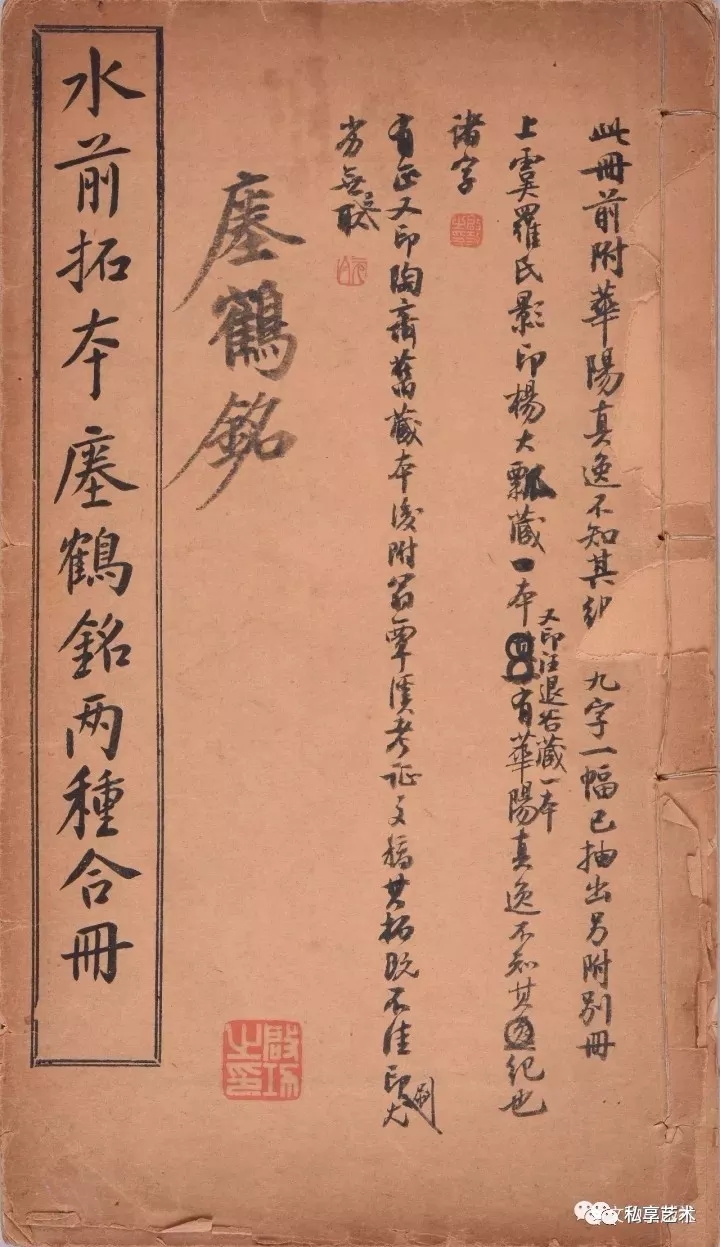 此冊前附華陽真逸不知其紀 九字一幅已抽出另附別冊
上虞羅氏影印楊大瓢藏一本有華陽真逸不知其紀也
又印汪退谷藏一本
諸字
有正又印陶齋舊藏本後附翁覃溪考证文稿其拓既不佳印刷尤
劣無足取
瘞鶴銘
水前拓本瘞鶴銘两種合冊
啟功之印
文私享艺术